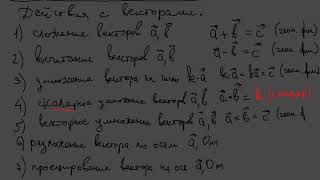 Действия с векторами.
1) сложение векторов a⃗, b⃗ a⃗ + b⃗ = c⃗ (геом. физ
2) вычитание векторов a⃗, b⃗ a⃗ - b⃗ = c⃗ (геом. физ
3) умножение вектора на число k·a⃗ k·a⃗ = c⃗ (геом. физ
4) скалярное умножение векторов a⃗, b⃗ a⃗·b⃗ = k (скаляр)
5) векторное умножение векторов a⃗, b⃗ a⃗×b⃗ = c⃗ (геом. ф
6) разложение вектора по осям a⃗, Om
7) проецирование вектора на ось a⃗, Om